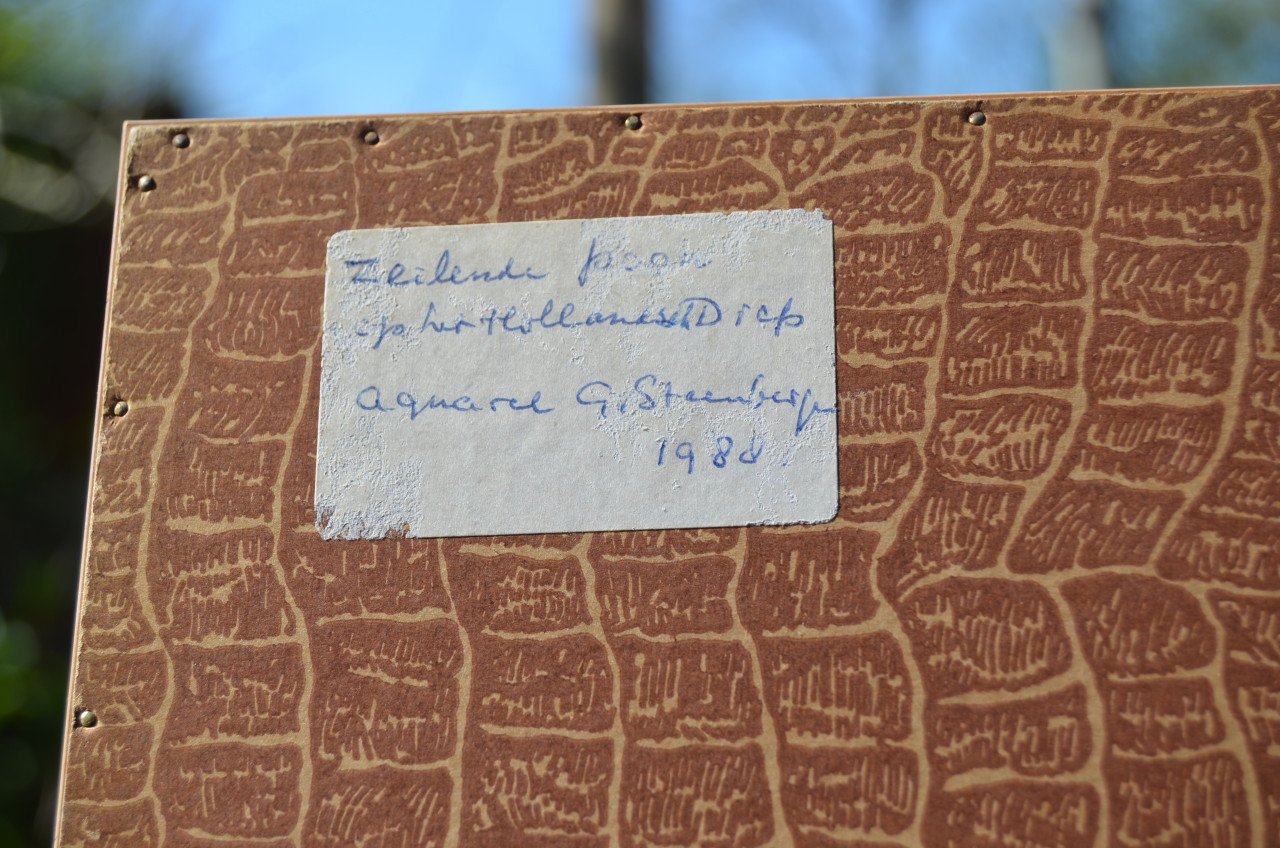 Zeilende poon
op het Hollands Diep
Aquarel G. Steenbergen
1988.